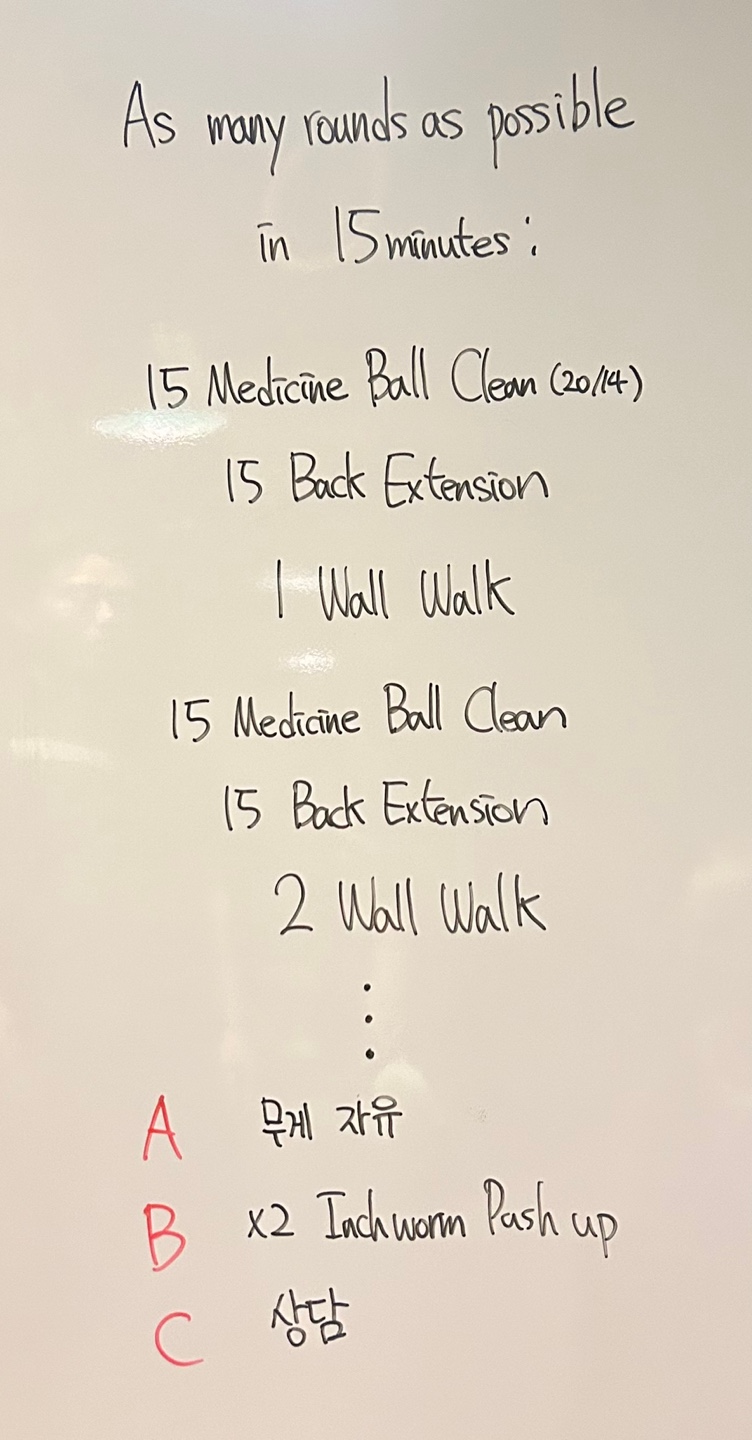 As many rounds as possible
in 15 minutes :
15 Medicine Ball Clean (20/14)
15 Back Extension
1 Wall Walk
15 Medicine Ball Clean
15 Back Extension
2 Wall Walk
⋮
A 무게 자유
B x2 Inchworm Push up
C 상담